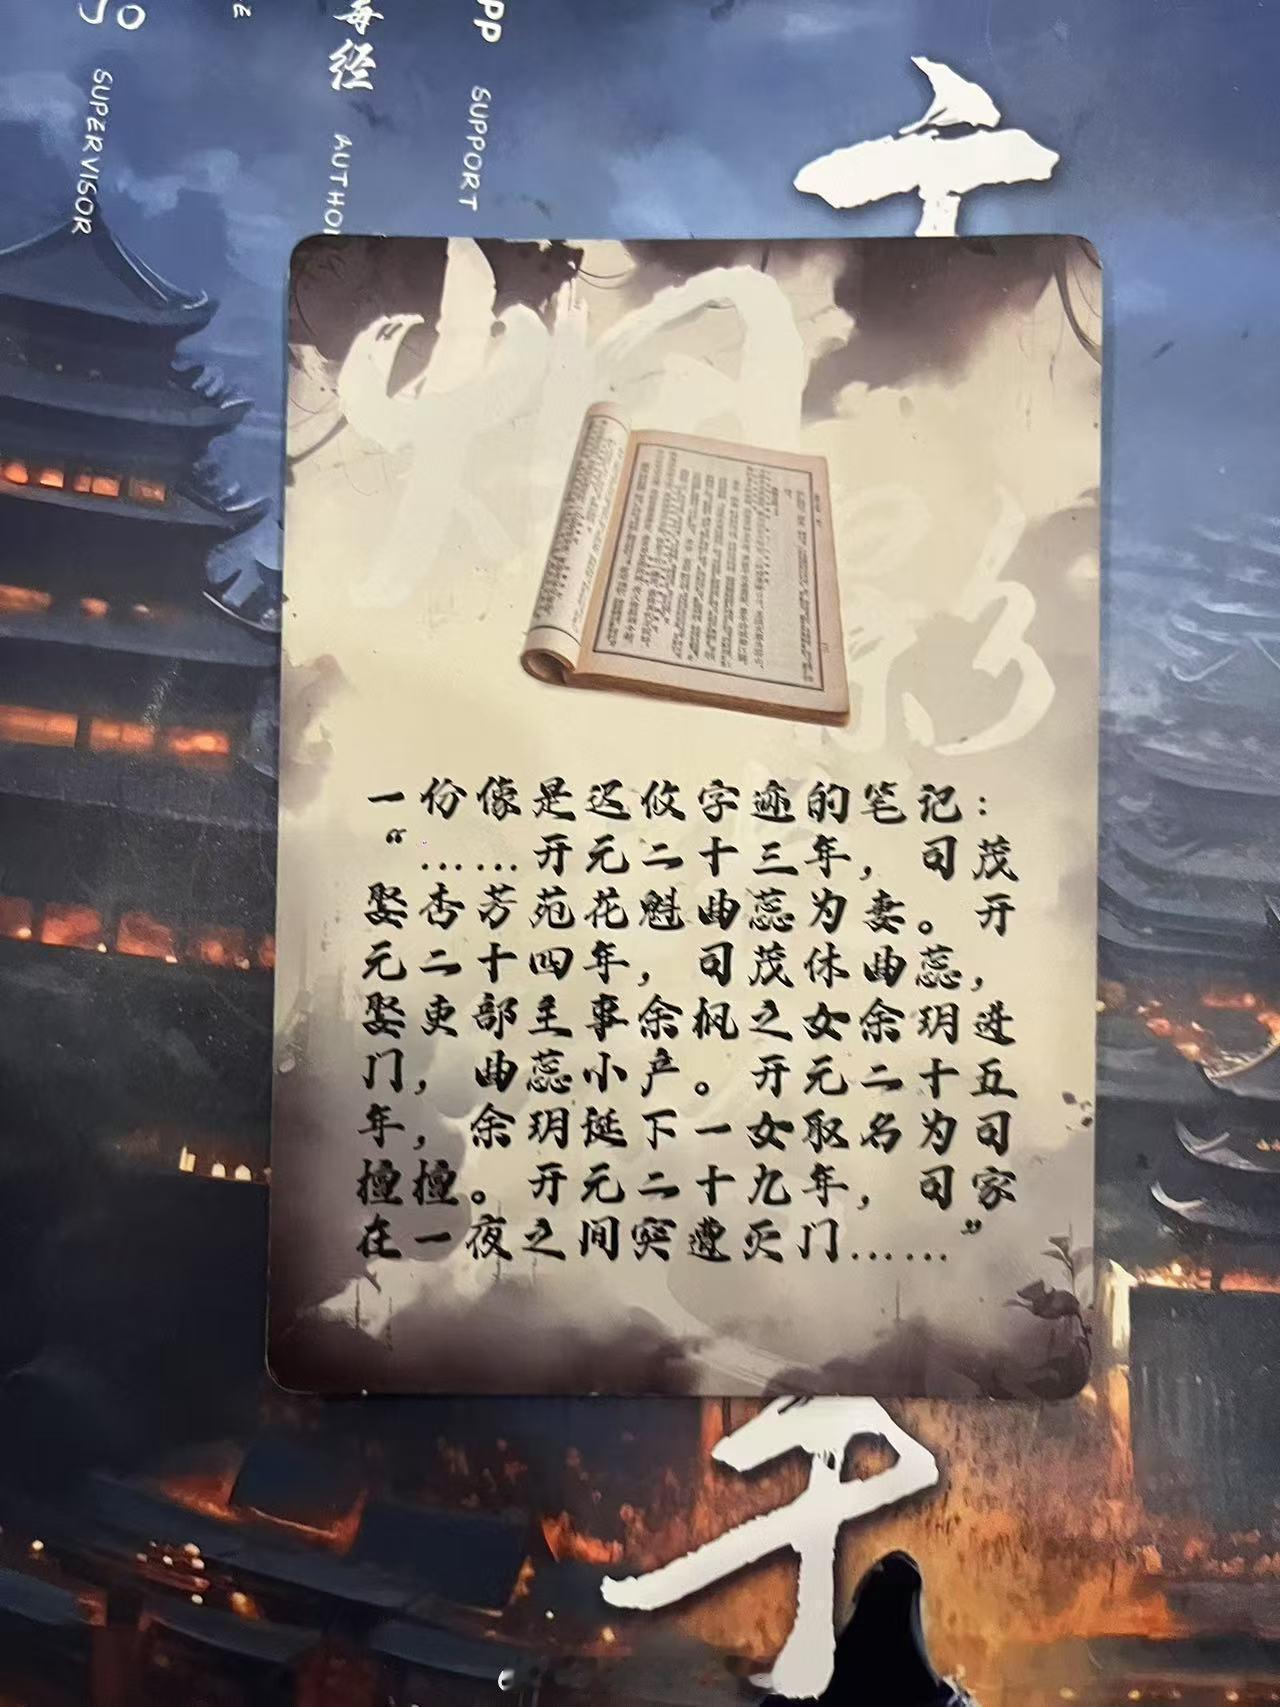 SUPERVISOR
经
AUTHO
PP
SUPPORT
烟
影
一份像是迟攸字迹的笔记：
“……开元二十三年，司茂
娶杏芳苑花魁曲蕊为妻。开
元二十四年，司茂休曲蕊，
娶吏部主事余枫之女余玥进
门，曲蕊小产。开元二十五
年，余玥诞下一女取名为司
檀檀。开元二十九年，司家
在一夜之间突遭灭门……”